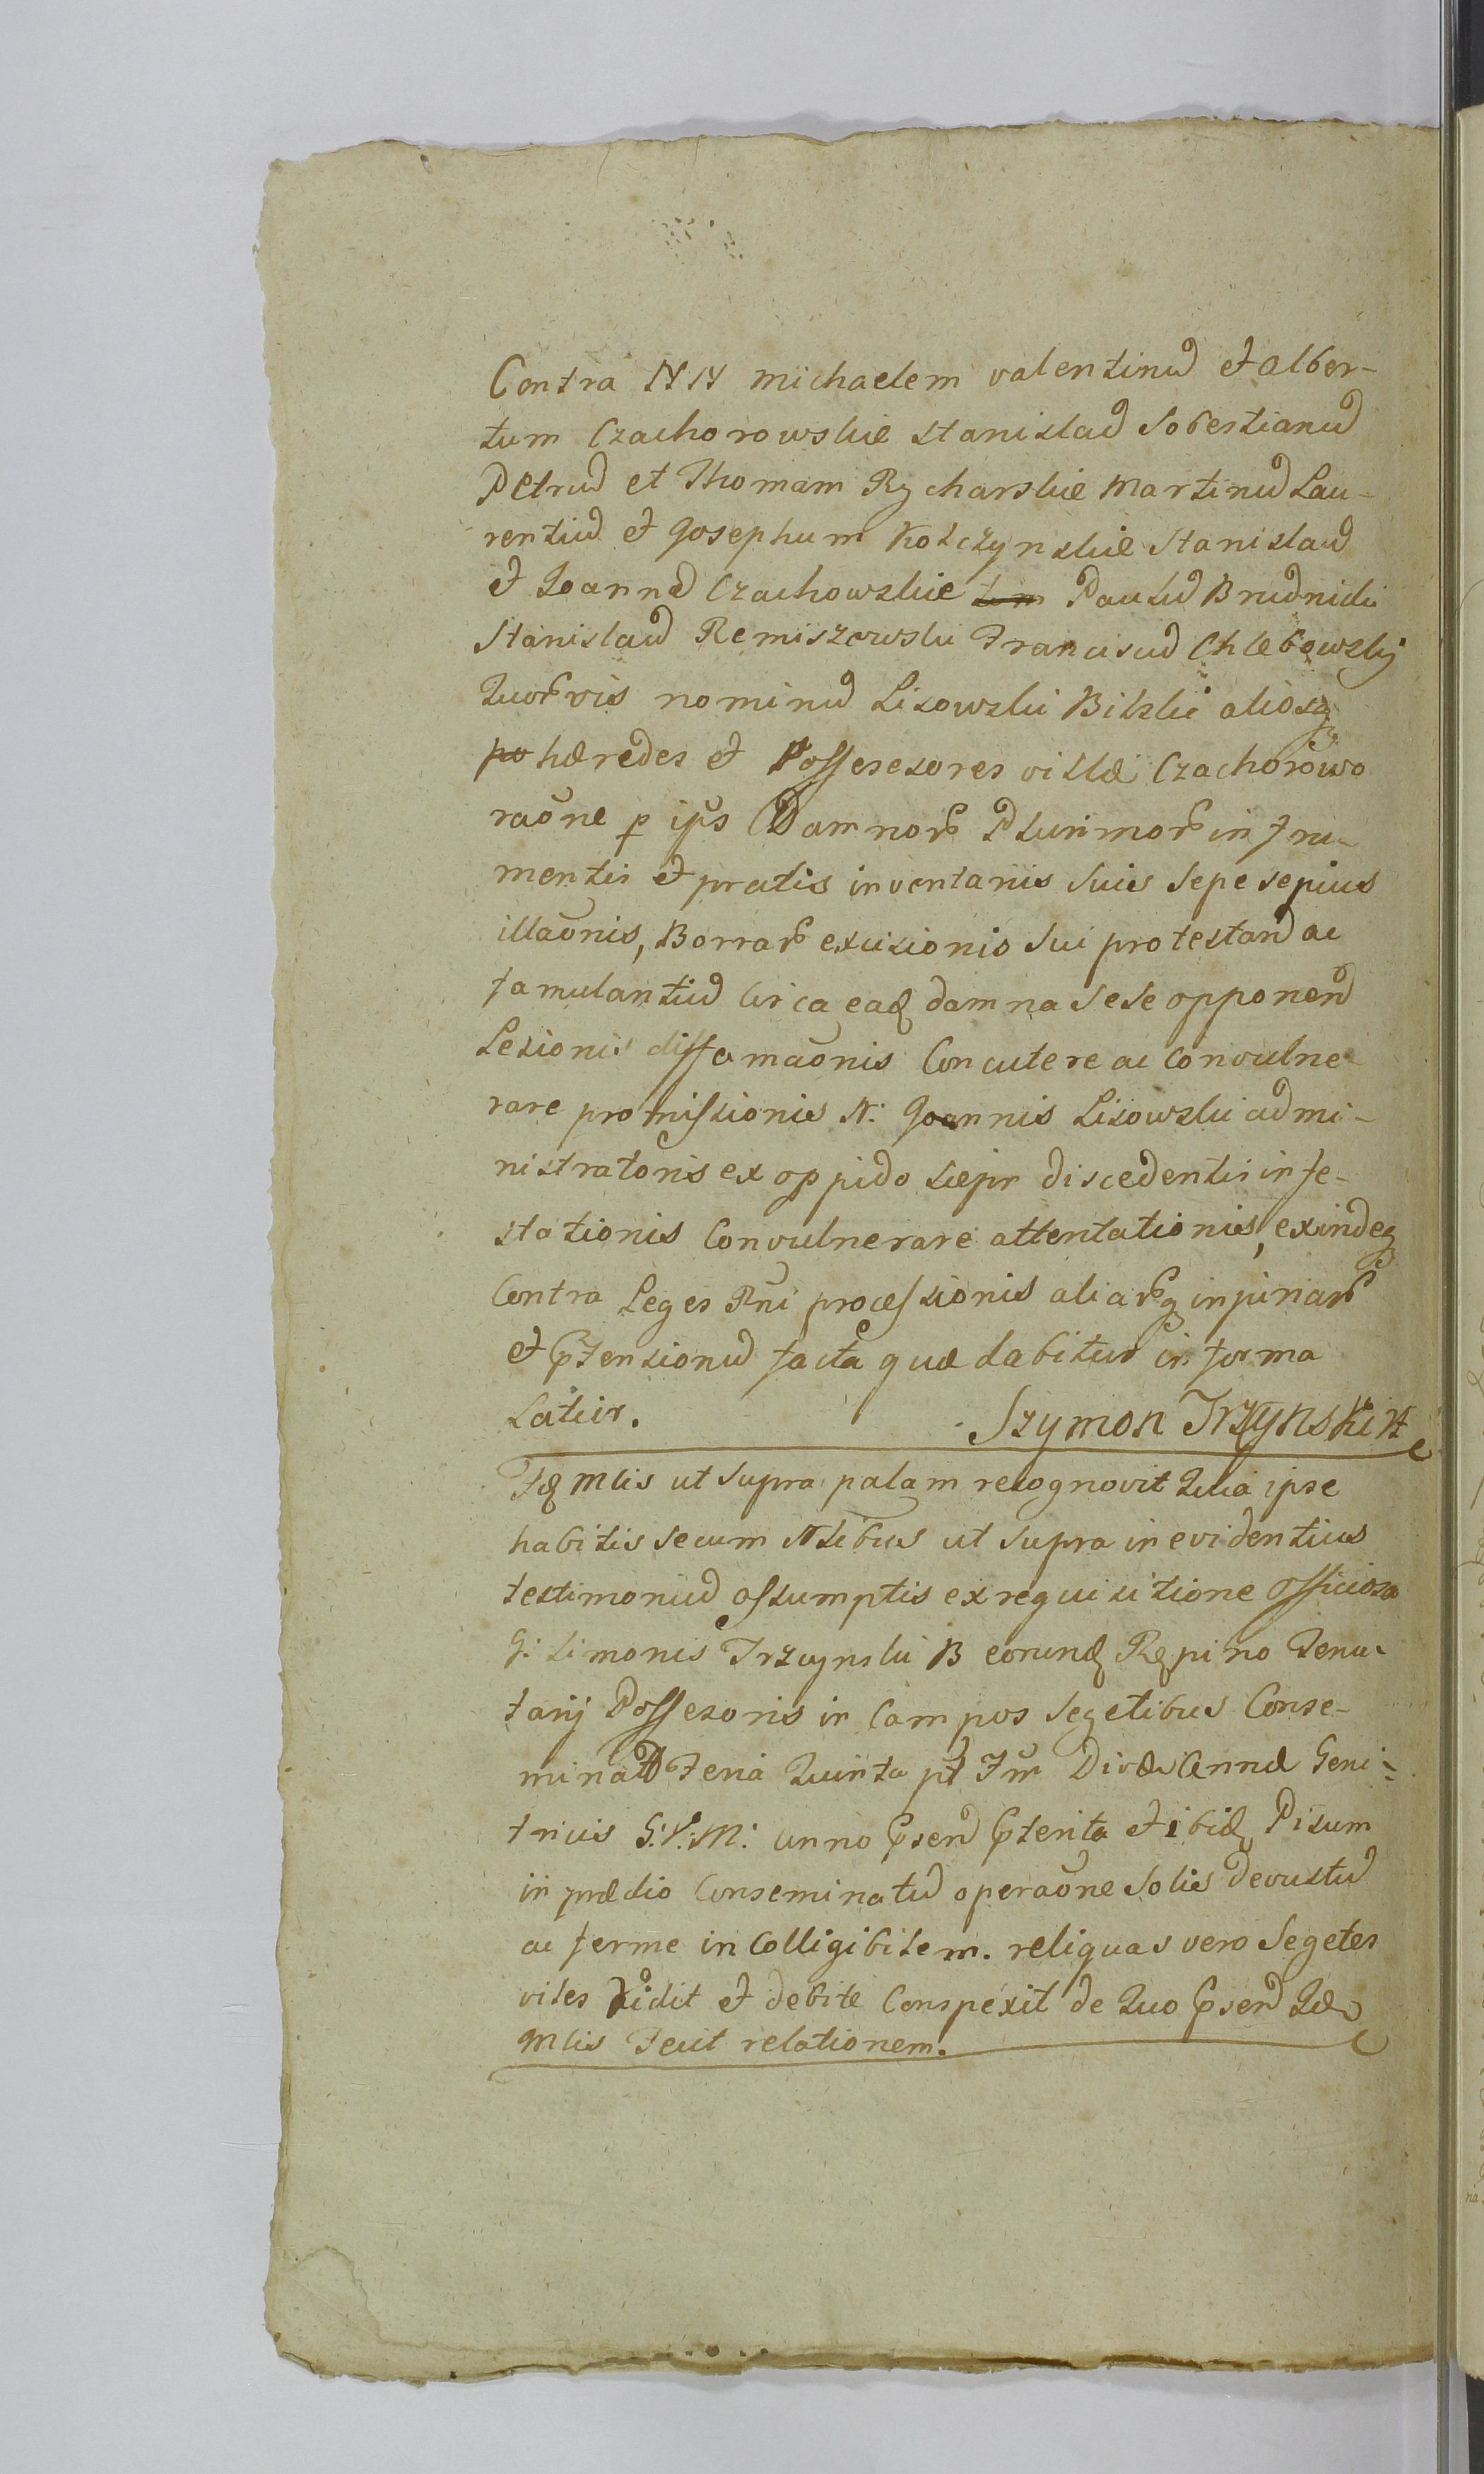 Contra NN michaelem valentinū et alber-
tum Czachorowskie stanislaū Sobestianū
Petrū et Thomam Rycharskie Martinū Lau-
rentiū et Josephum Kolczynskie Stanislaū
et Joannē Czachowskie Paulū Brudnicki
Stanislaū Remiszewski Franciscū Chlebowskij
Quorvis nominū Lisowski Bilskie aliosq
hæredes et Possesesores villæ Czachorowo
raone p ips Damnor Plurimor in fru-
mentis et pratis inventariis suis sepe sepius
illaonis, Borrar excisionis sui protestan ac
famulantiū circa eaq damna sese opponen
Lesionis diffamaonis Concutere ac convulne-
rare promissionis N: Joannis Lisowski admi-
nistratoris ex oppido sæpr discedentis infe-
stationis Convulnerare attentationis, exindeq
Contra Leges Rni processionis aliarq injuriar
et Ptensionū facta quæ dabitur in forma
Latiir. Szymon Trzcynski
Idq Mlis ut supra palam recognovit Quia ipse
habitis secum Nlibus ut supra in evidentius
testimoniū assumptis ex requisitione officiosa
G: Simonis Trzcynski B eorundq Rqpino Tenu-
tarij Possesoris in Campos segetibus Conse-
minat Feria Quinta pt Fm Divæ Annæ Geni-
tricis G:V:M: anno Psen Pterita et ibidq Pisum
in prædio Conseminatū operaone solis devustū
ac ferme in Colligibilem. reliquas vero segetes
viles vidit et debite Conspexit de Quo Psen Idq
Mlis Fecit relationem.